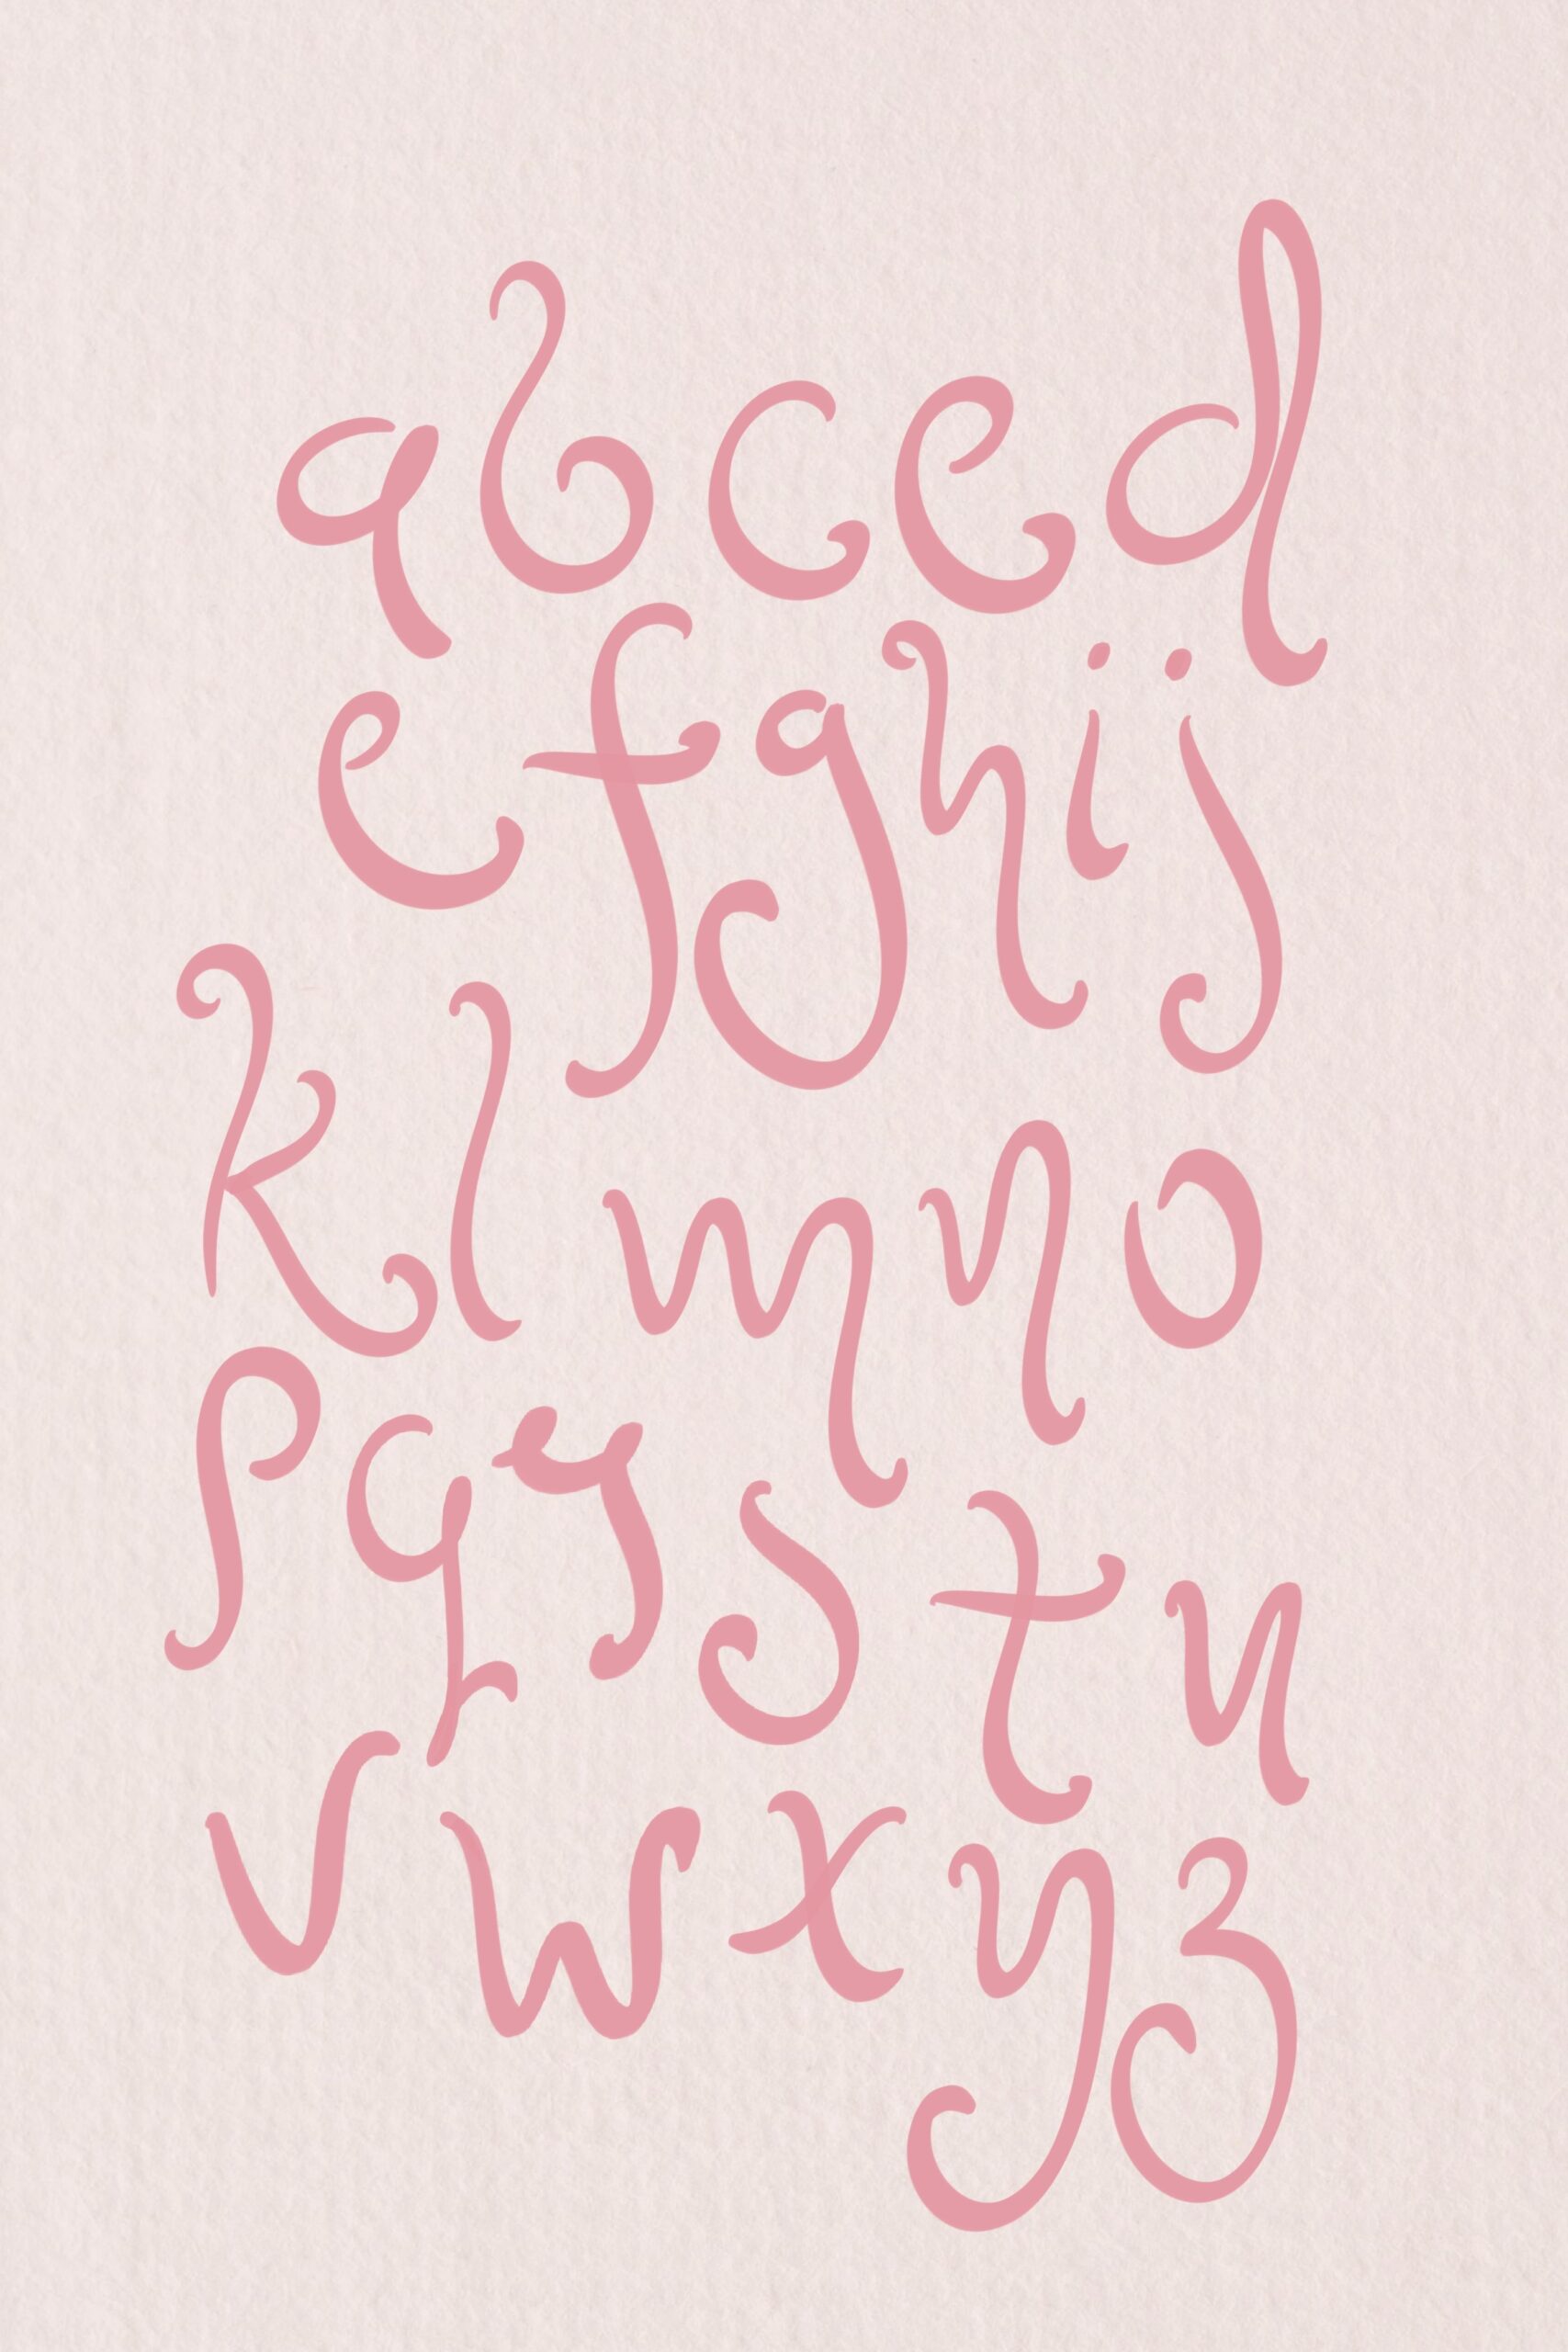 abced
efghij
klmno
pqrstu
vwxyz